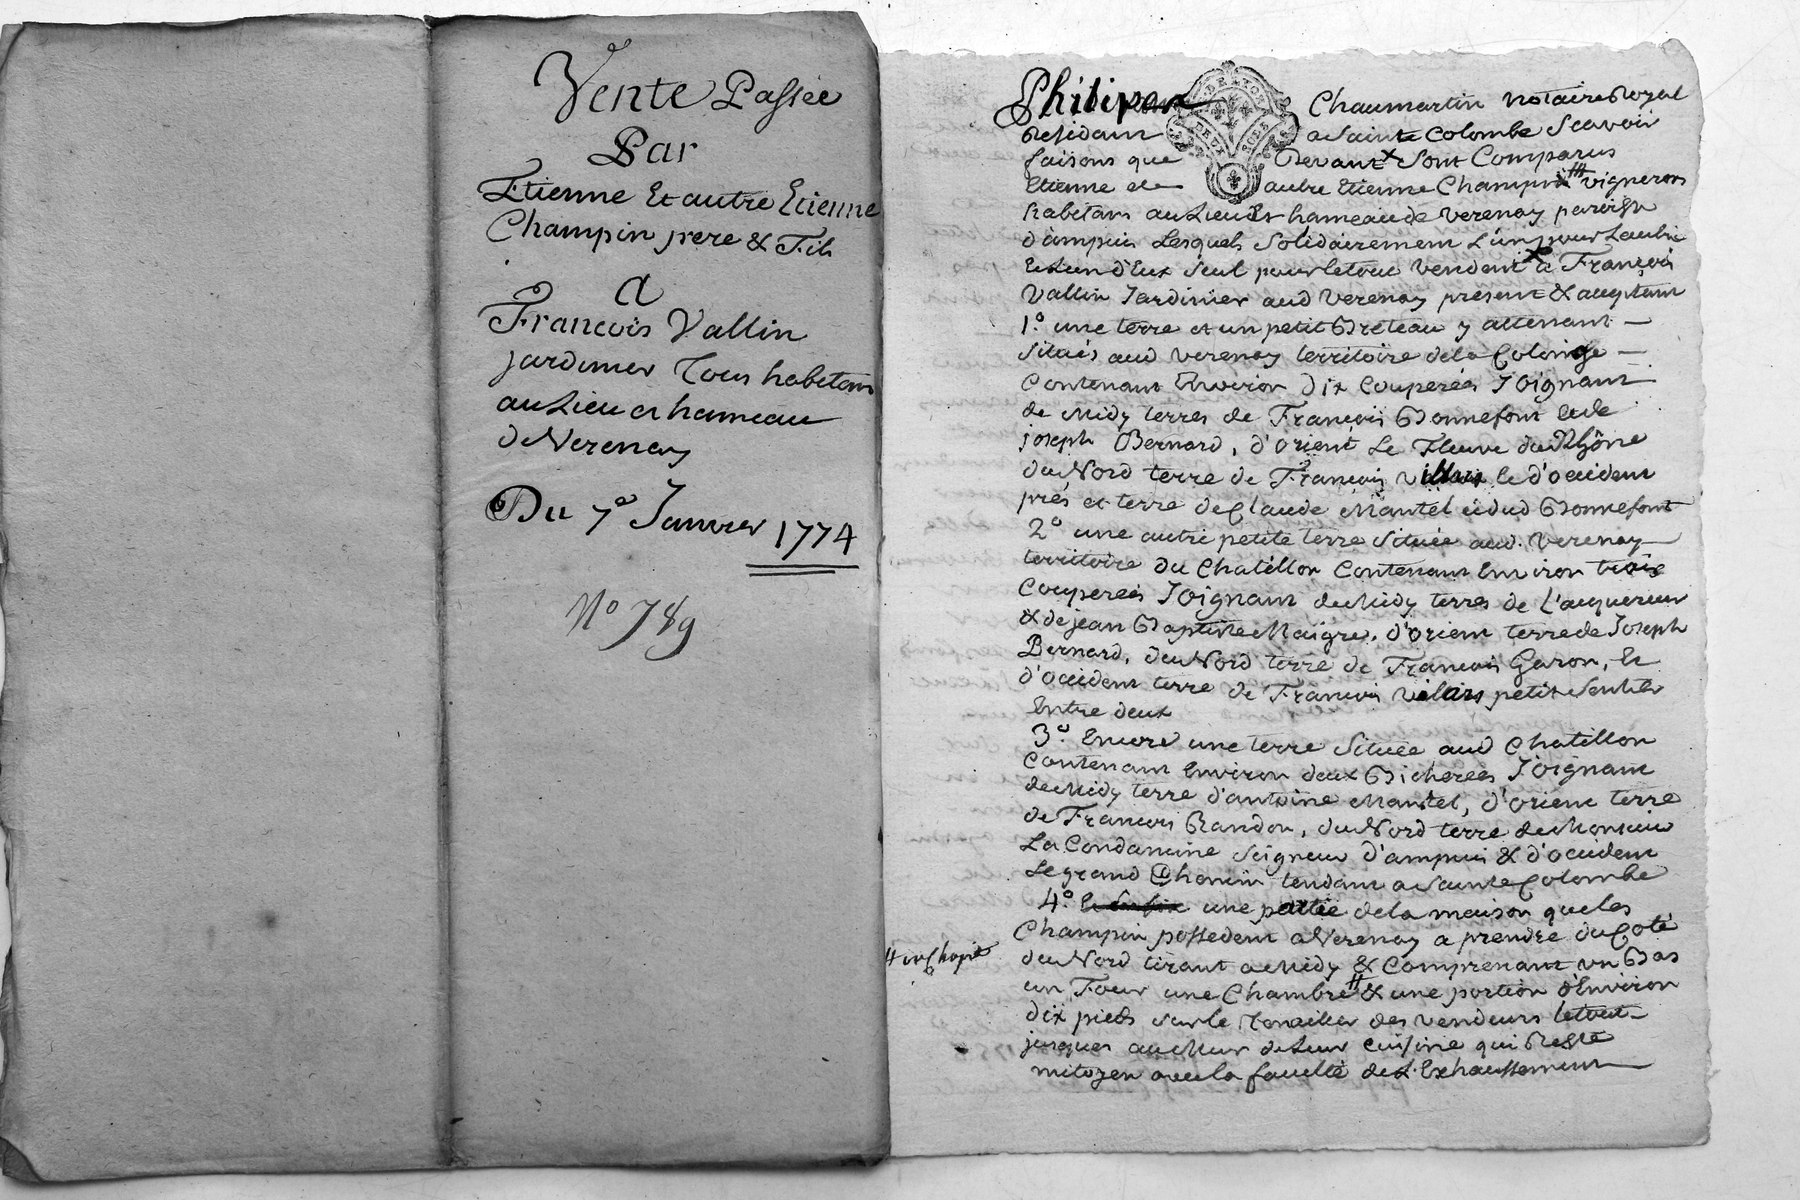 Vente Passée
Par
Etienne Et autre Etienne
Champin pere & Fils
A
Francois Vallin
jardinier Tous habitans
au Lieu et hameau
de Verenay
Du 7e Janvier 1774
No 789
Chaumartin notaire Royal
Residant a Sainte Colombe Scavoir
faisons que Devant Sont Comparus
Etienne et autre Etienne Champin vignerons
habitans au Lieu Et hameau de Verenay paroisse
d'ampuis Lesquels Solidairement L'un pour Lautre
Et Lun d'Eux Seul pour le tout Vendent a François
Vallin Jardinier aud Verenay present & acceptant
1.º une terre et un petit Breteau y attenant
Situés aud Verenay territoire de la Colonge
Contenant Environ Dix Couperées Joignant
de Midy terres de François Bonnefont et de
joseph Bernard, d'orient Le Fleuve du Rhône
du Nord terre de François le d'occident
prés et terre de Claude Mantel et dud Bonnefont
2º une autre petite terre Située aud. Verenay
territoire du Chatillon Contenant Environ trois
Couperées Joignant du Midy terres de L'acquereur
& de jean Baptiste Maigre, d'orient terre de Joseph
Bernard, du Nord terre de Francois Garon, Et
d'occident terre de Francois petit Sentier
Entre deux
3.º Encore une terre Située aud Chatillon
Contenant Environ deux Bicherées Joignant
de Midy terre d'antoine Mantel, d'orient terre
de Francois Randon, du Nord terre de Monsieur
La Condamine Seigneur d'ampuis & d'occident
Le grand Chemin tendant a Sainte Colombe
4.º une partie de la maison que les
Champin possedent a Verenay a prendre du Coté
du Nord tirant a Midy & Comprenant un Bas
un Four une Chambre # & une portion d'Environ
dix pieds sur le Tonailler des vendeurs le tout
jusques au Mur de Leur cuisine qui Reste
mitoyen avec la faculté de L'Exhaussement